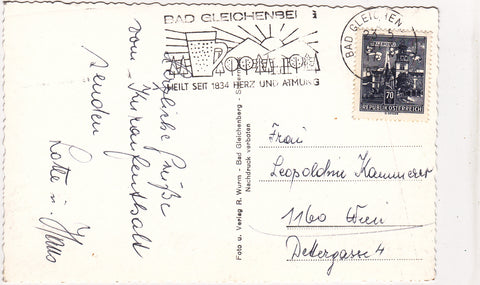 BAD GLEICHENBE
HEILT SEIT 1834 HERZ UND ATMUNG
BAD GLEICHEN
70
REPUBLIK ÖSTERREICH
Herzliche Grüße
vom Kuraufenthalt
senden
Lotte u. Hans
Foto u. Verlag R. Wurm - Bad Gleichenberg -
Nachdruck verboten
Frau
Leopoldine Kammerer
1160 Wien
Dettergasse 4